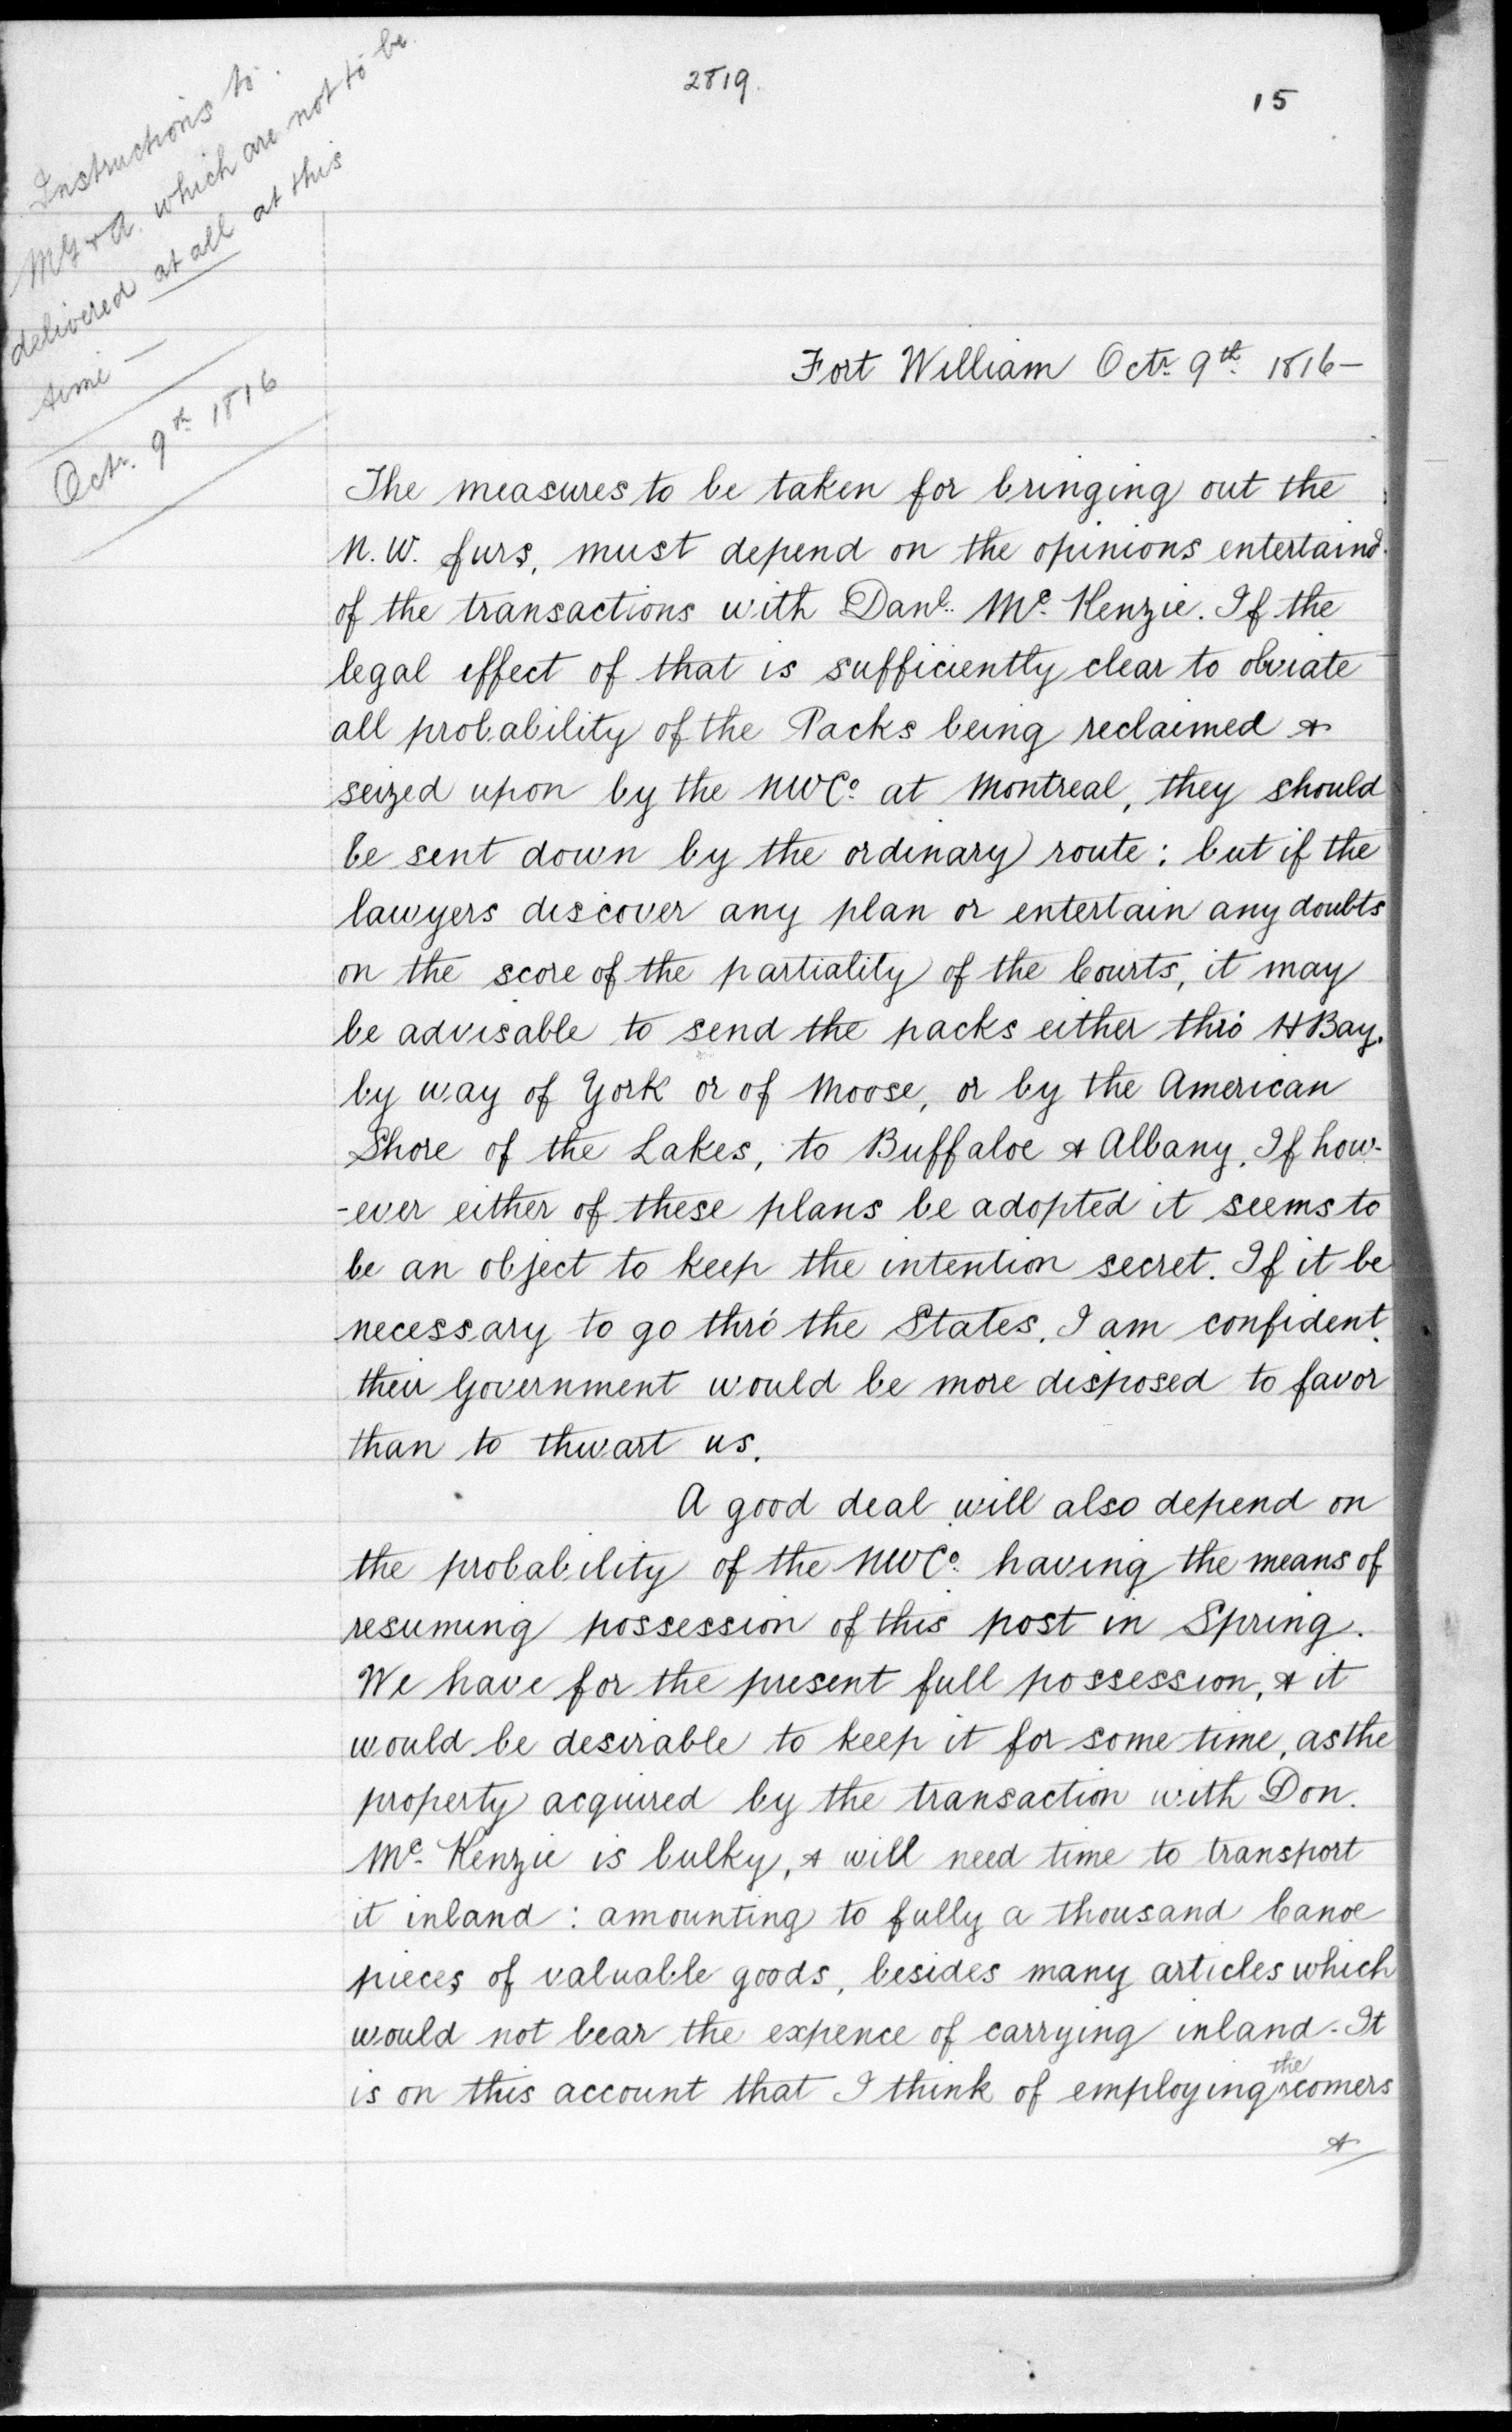 2819.
15
Instructions to
McG & A. which are not to be
delivered at all at this
time —
Octr. 9th 1816
Fort William Octr. 9th. 1816 —
The measures to be taken for bringing out the
N.W. furs, must depend on the opinions entertaind.
of the transactions with Danl. Mc. Kenzie. If the
legal effect of that is sufficiently clear to obviate
all probability of the Packs being reclaimed &
seized upon by the NWCo. at Montreal, they should
be sent down by the ordinary route: but if the
lawyers discover any plan or entertain any doubts
on the score of the partiality of the Courts, it may
be advisable to send the packs either thró HBay.
by way of York or of Moose, or by the American
Shore of the Lakes, to Buffaloe & Albany. If how-
-ever either of these plans be adopted it seems to
be an object to keep the intention secret. If it be
necessary to go thró the States, I am confident
their Government would be more disposed to favor
than to thwart us.
A good deal will also depend on
the probability of the NWCo. having the means of
resuming possession of this post in Spring.
We have for the present full possession, & it
would be desirable to keep it for some time, as the
property acquired by the transaction with Don.
Mc. Kenzie is bulky, & will need time to transport
it inland: amounting to fully a thousand Canoe
pieces of valuable goods, besides many articles which
would not bear the expence of carrying inland. It
is on this account that I think of employing the comers
&